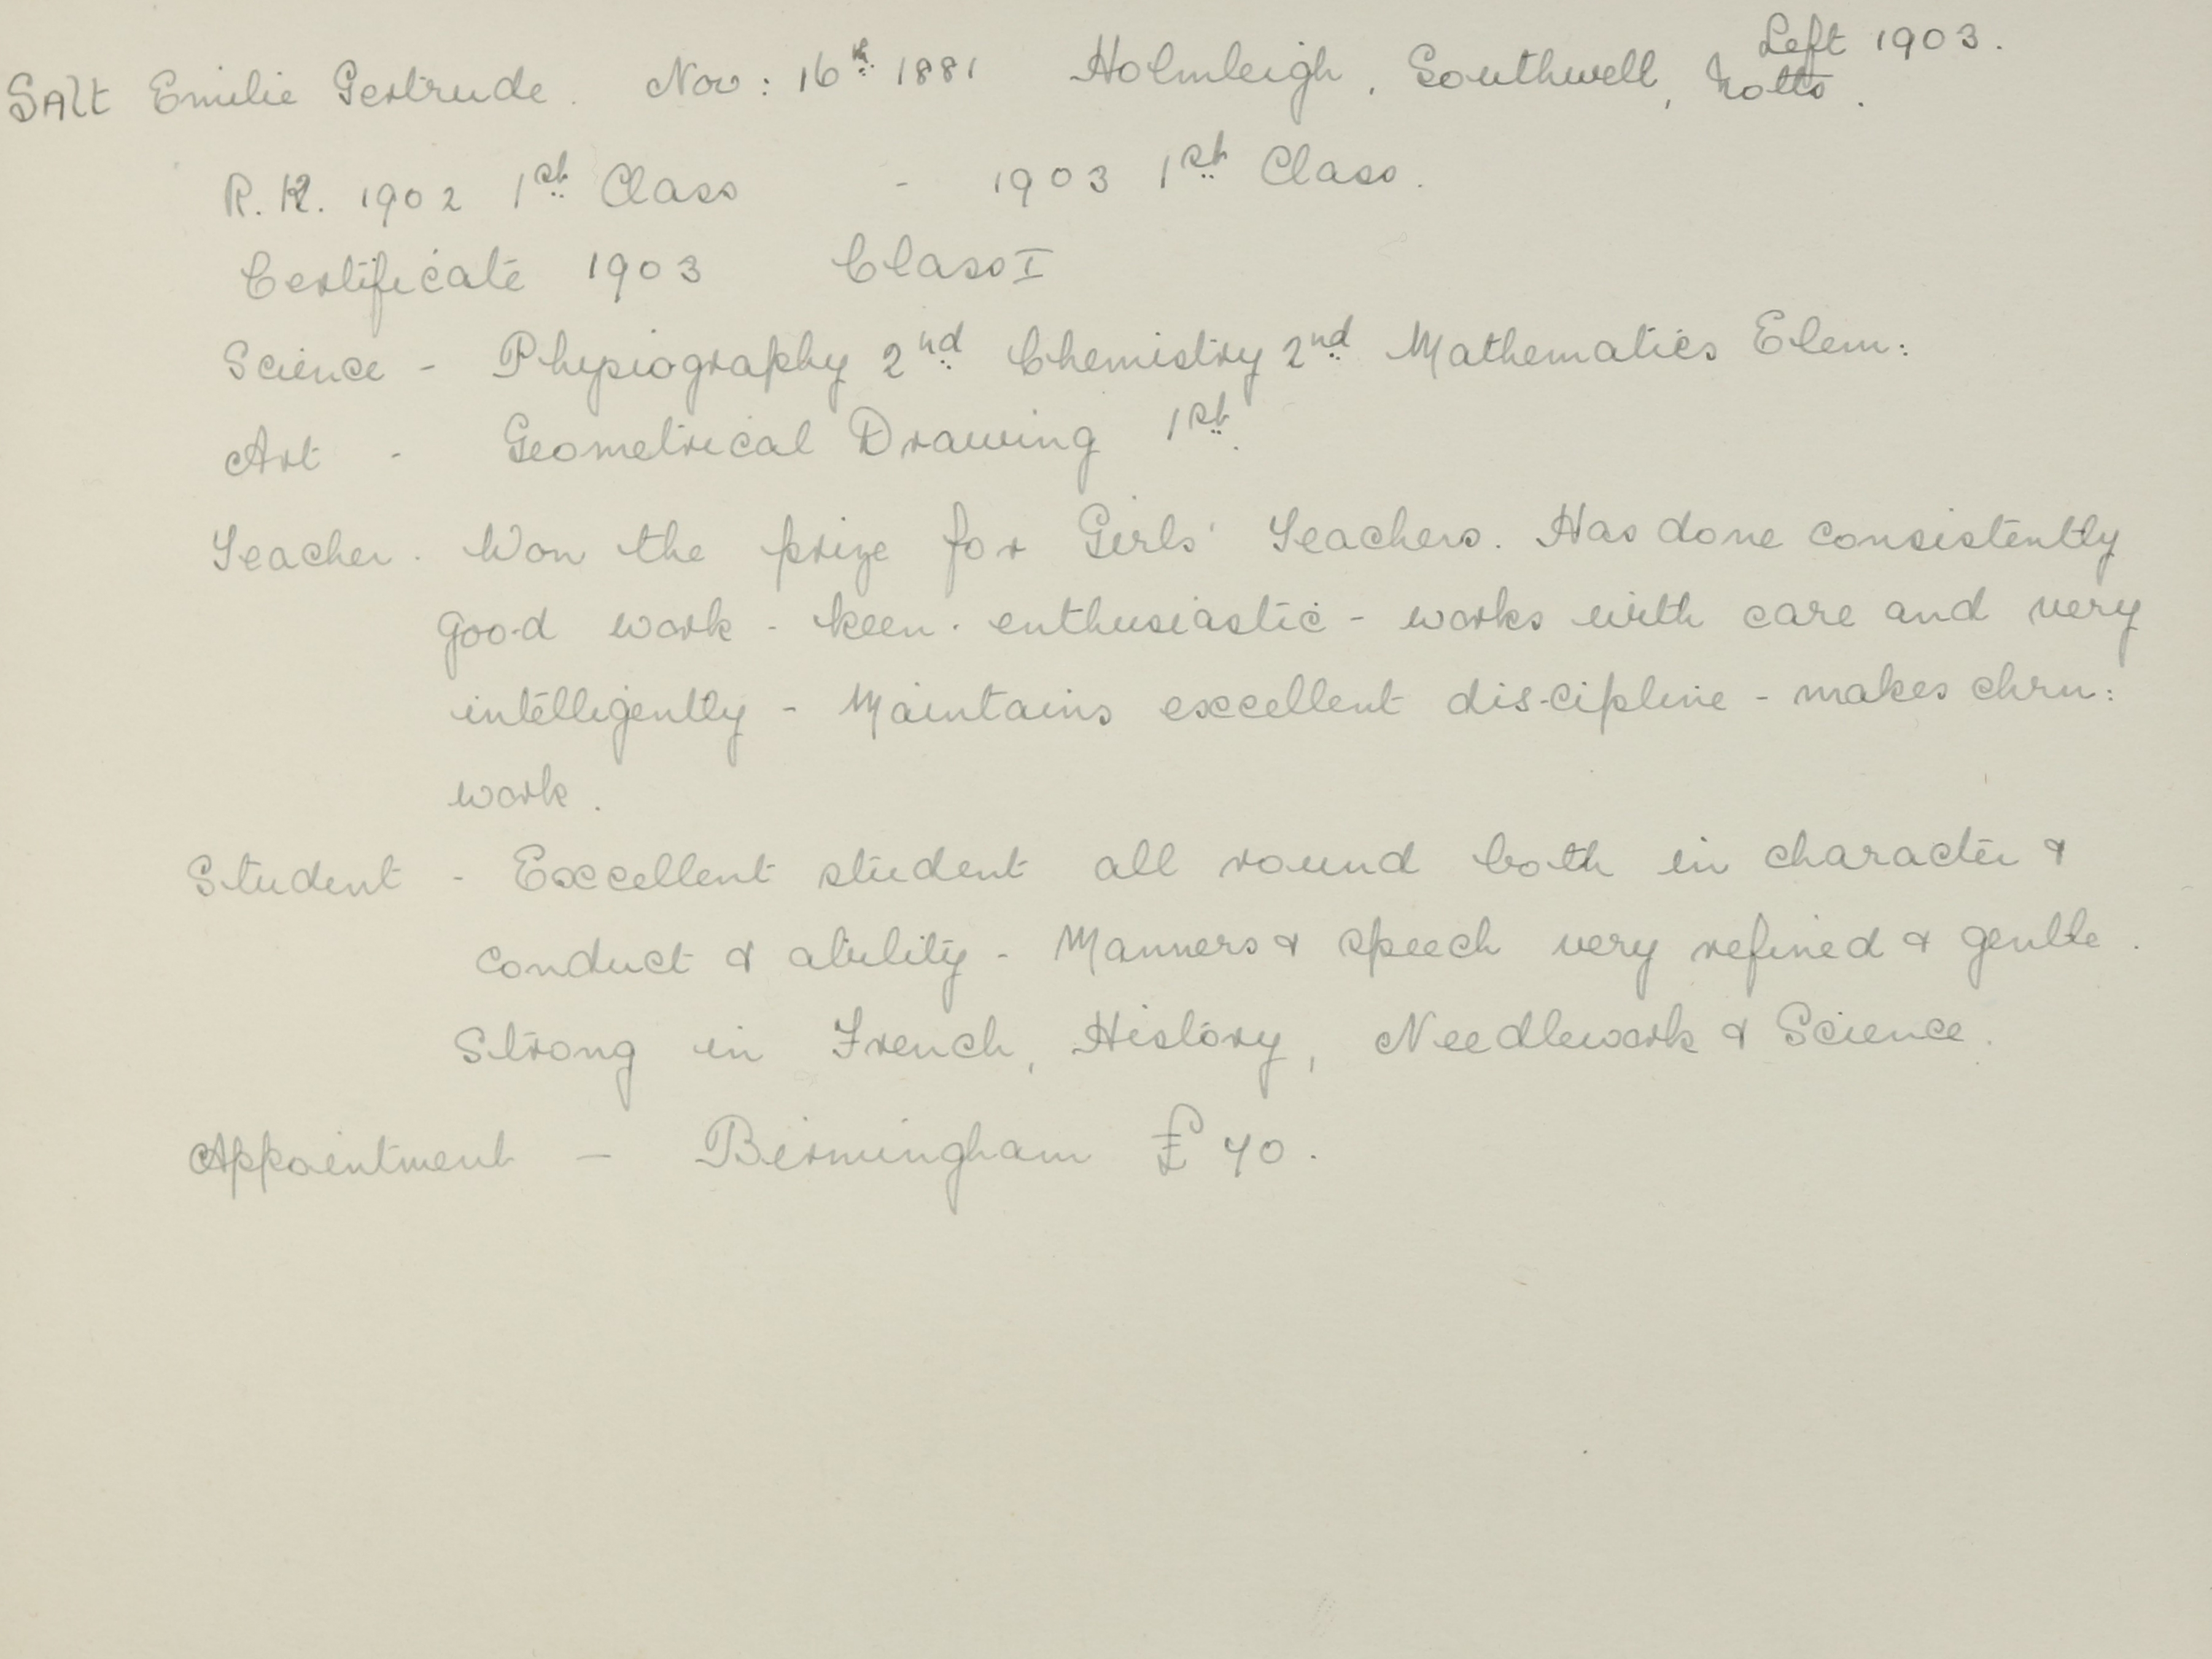 Left 1903.
SAlt Emilie Gertrude. Nov: 16th 1881 Holmleigh, Southwell, Notts.
R.K. 1902 1st Class - 1903 1st Class.
Certificate 1903 Class I
Science - Physiography 2nd Chemistry 2nd Mathematics Elem:
Art - Geometrical Drawing 1st.
Teacher. Won the prize for Girls' Teachers. Has done consistently
good work - keen. enthusiastic - works with care and very
intelligently - Maintains excellent dis-cipline - makes chrn:
work.
Student - Excellent student all round both in character &
conduct & ability - Manners & speech very refined & gentle.
Strong in French, History, Needlework & Science.
Appointment - Birmingham £ 70.